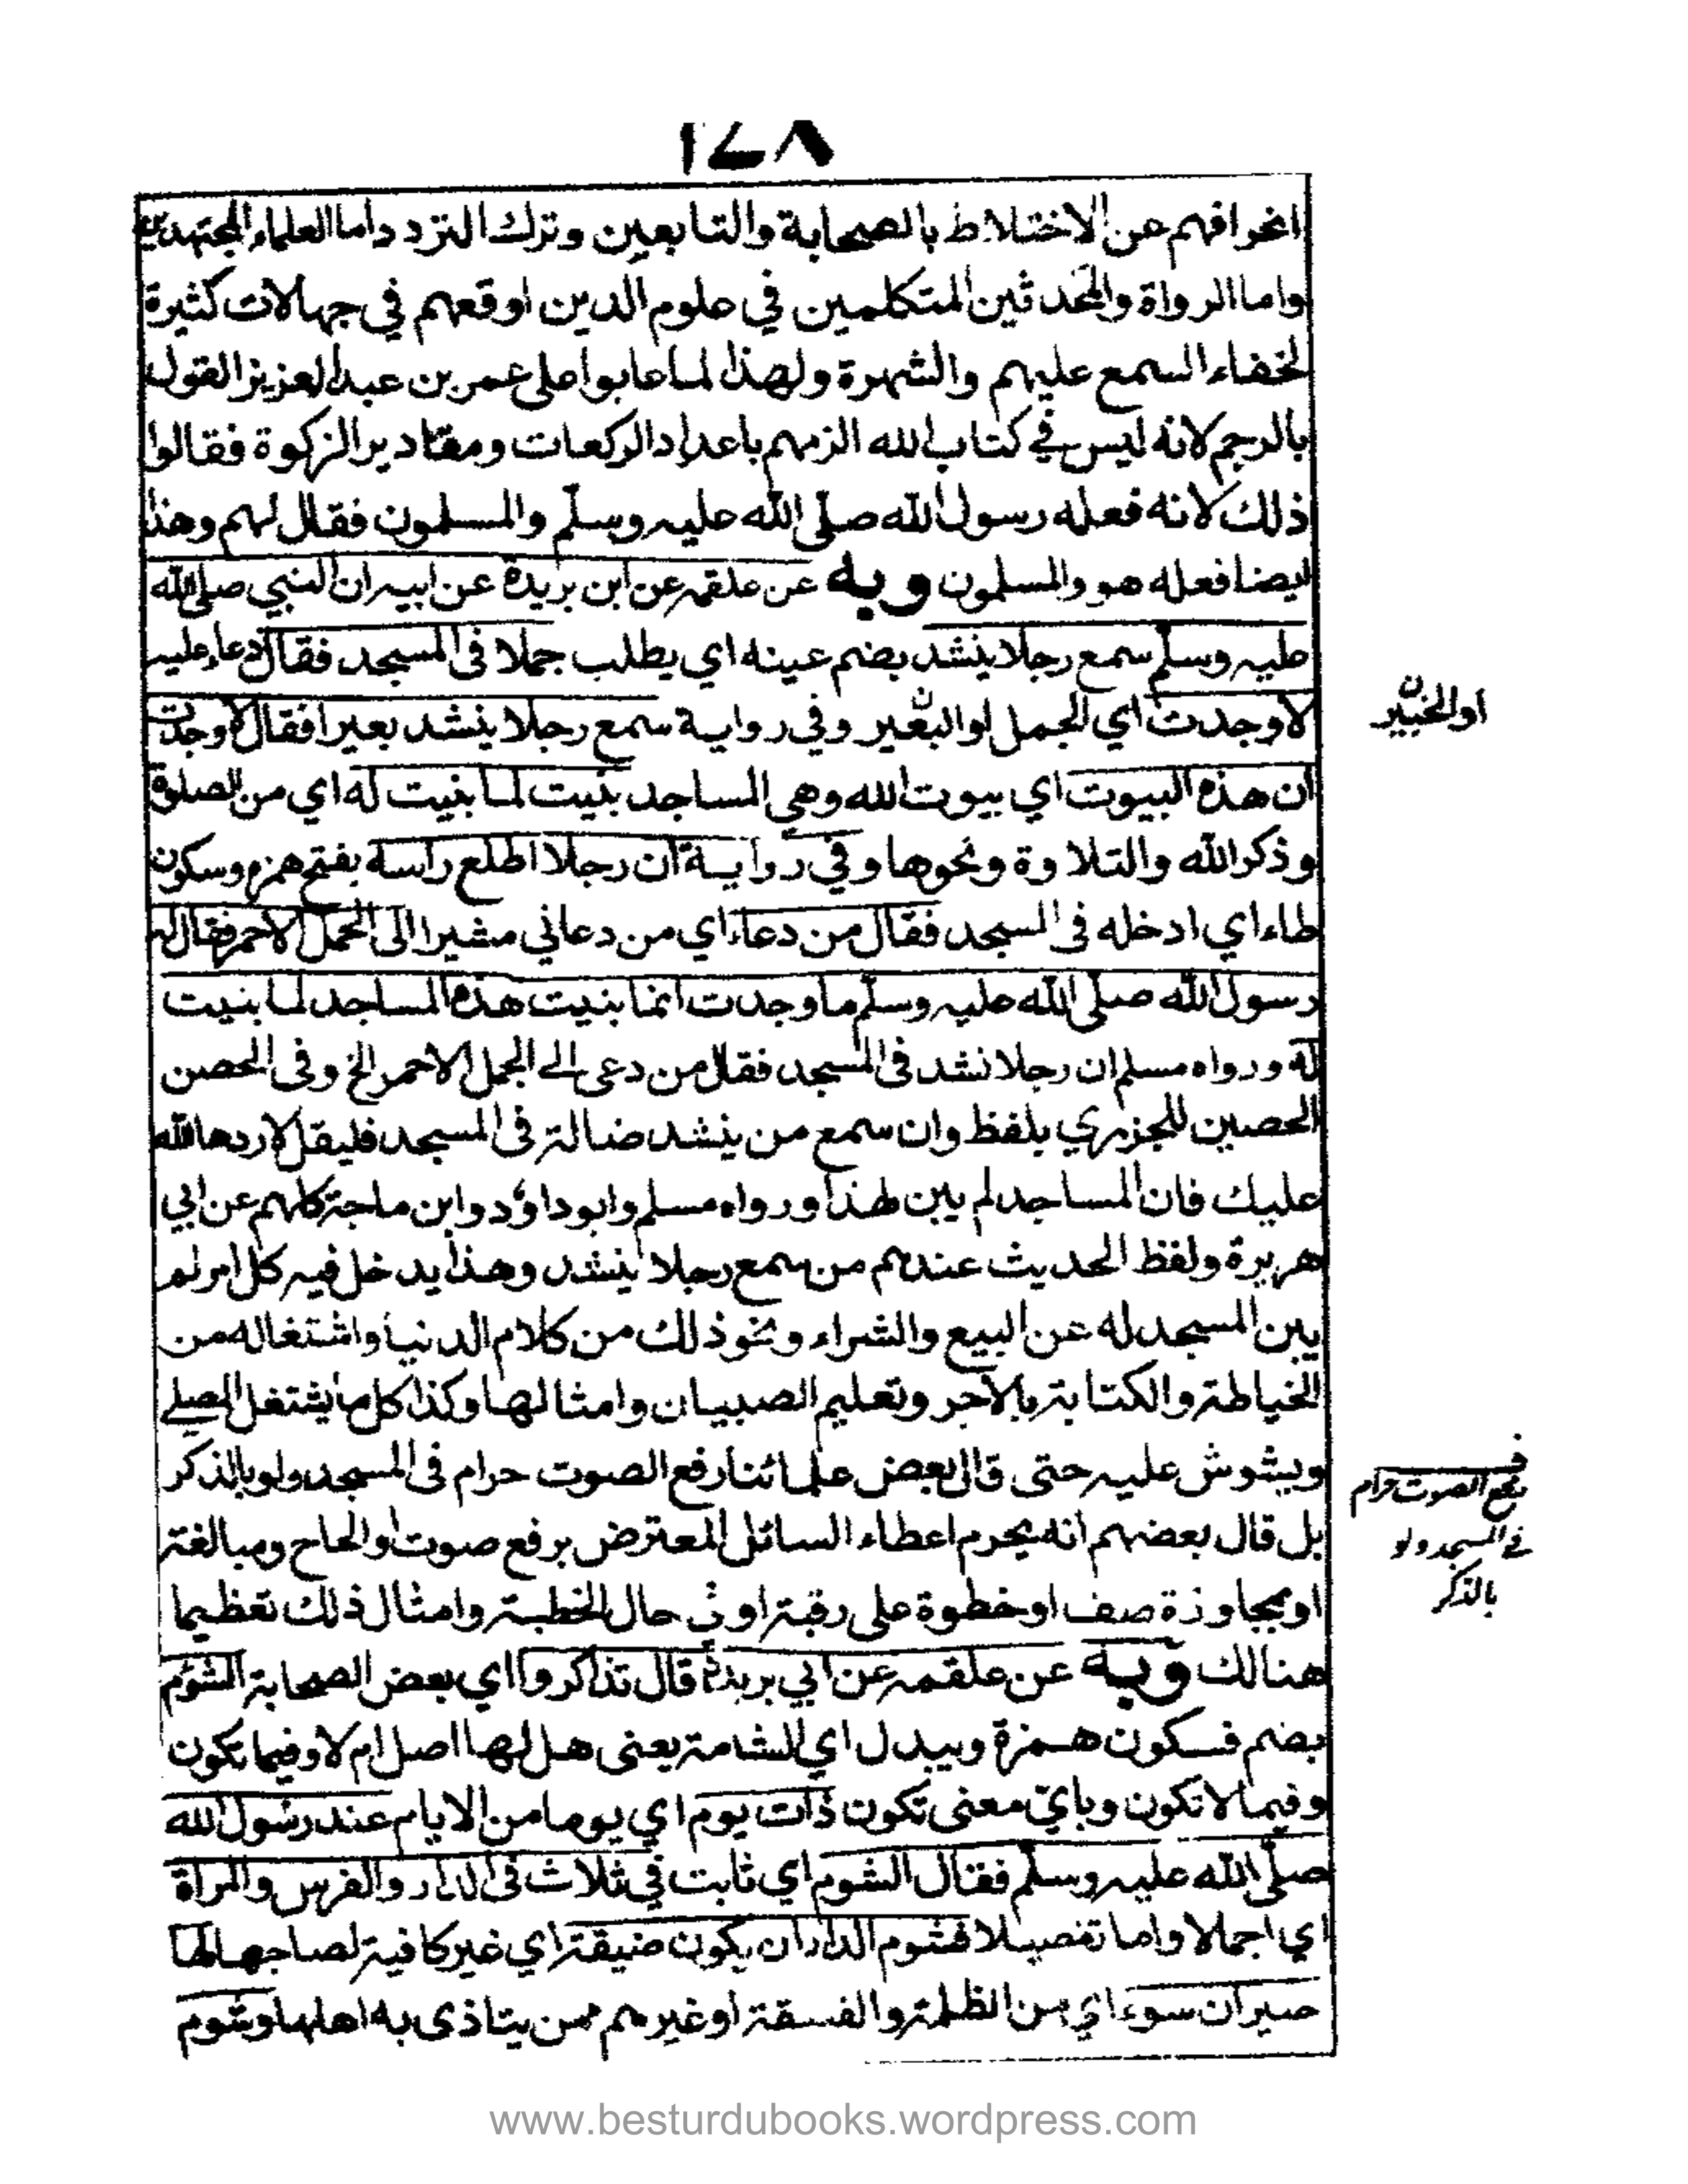 ١٤٨
انحرافهم عن الاختلاط بالصحابة والتابعين وترك التردد داما العلماء المجتهدين
واما الرواة والمحدثين المتكلمين في علوم الدين اوقعهم في جهالات كثيرة
لخفاء السمع عليهم والشهرة ولهذا لما عابوا على عمر بن عبد العزيز القول
بالرجم لانه ليس في كتاب الله الزمهم باعداد الركعات ومقادير الزكوة فقالوا
ذلك لانه فعله رسول الله صلى الله عليه وسلم والمسلمون فقال لهم وهذا
ايضا فعله هو والمسلمون وبه عن علقمة عن ابن بريدة عن ابيه ان النبي صلى الله
عليه وسلم سمع رجلا ينشد بضم عينه اي يطلب جملا فى المسجد فقال دعاء عليه
لا وجدت اي الجمل او البعير وفي رواية سمع رجلا ينشد بعيرا فقال لا وجدت
او الخبير
ان هذه البيوت اي بيوت الله وهي المساجد بنيت لما بنيت له اي من الصلوة
وذكر الله والتلاوة ونحوها وفي رواية ان رجلا اطلع راسه بفتح همزه وسكون
طاء اي ادخله فى المسجد فقال من دعاء اي من دعاني مشيرا الى الجمل الاحمر فقال له
رسول الله صلى الله عليه وسلم ما وجدت انما بنيت هذه المساجد لما بنيت
له ورواه مسلم ان رجلا نشد فى المسجد فقال من دعى الے الجمل الاحمر الخ وفى الحصن
الحصين للجزري بلفظ وان سمع من ينشد ضالة فى المسجد فليقل لا ردها الله
عليك فان المساجد لم يبن لهذا ورواه مسلم وابو داؤد وابن ماجة كلهم عن ابي
هريرة ولفظ الحديث عندهم من سمع رجلا ينشد وهذا يدخل فيه كل امر لم
يبن المسجد له عن البيع والشراء ونحو ذلك من كلام الدنيا واشتغاله من
الخياطة والكتابة بالاجر وتعليم الصبيان وامثالها وكذا كل ما يشتغل المصلے
ويشوش عليه حتى قال بعض علمائنا رفع الصوت حرام فى المسجد ولو بالذكر
ف
رفع الصوت حرام
في المسجد ولو
بالذكر
بل قال بعضهم انه يحرم اعطاء السائل المعترض برفع صوت او الحاح ومبالغة
او بمجاوزة صف او خطوة على رقبة او في حال الخطبة وامثال ذلك تعظيما
هنالك وبه عن علقمة عن ابي بريدة قال تذاكروا اي بعض الصحابة الشؤم
بضم فسكون همزة ويبدل اي للشامة يعنى هل لها اصل ام لا وفيما تكون
وفيما لا تكون وباي معنى تكون ذات يوم اي يوما من الايام عند رسول الله
صلى الله عليه وسلم فقال الشوم اي ثابت في ثلاث فى الدار والفرس والمراة
اي اجمالا واما تفصيلا فشوم الدار ان يكون ضيقة اي غير كافية لصاحبها لها
جيران سوء اي من الظلمة والفسقة او غيرهم ممن يتاذى به اهلها وشوم
www.besturdubooks.wordpress.com